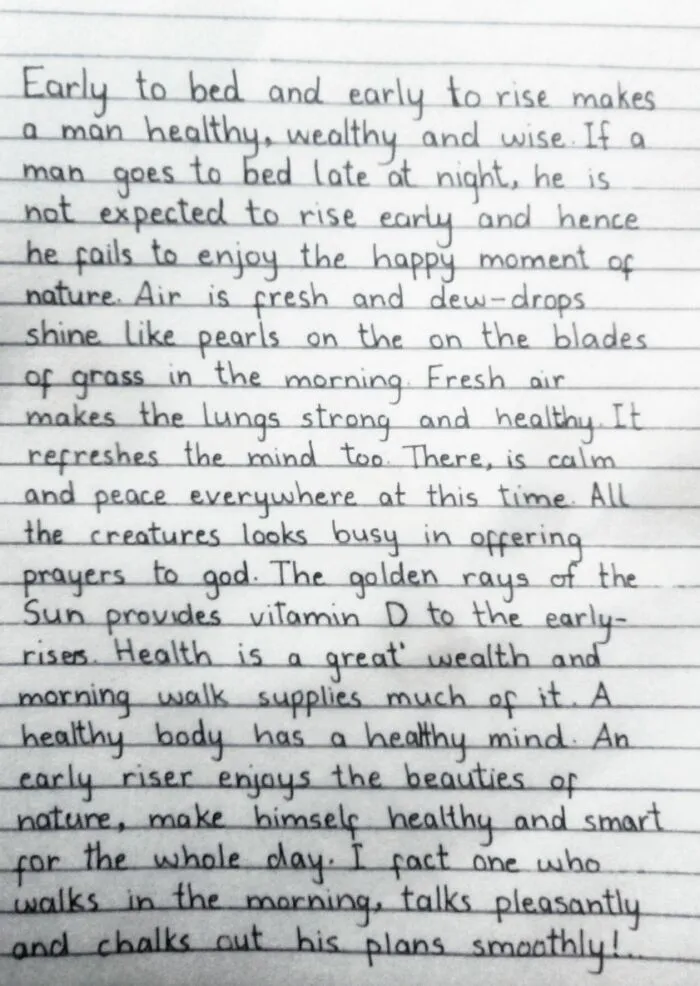 Early to bed and early to rise makes
a man healthy, wealthy and wise. If a
man goes to bed late at night, he is
not expected to rise early and hence
he fails to enjoy the happy moment of
nature. Air is fresh and dew-drops
shine like pearls on the on the blades
of grass in the morning. Fresh air
makes the lungs strong and healthy. It
refreshes the mind too. There, is calm
and peace everywhere at this time. All
the creatures looks busy in offering
prayers to god. The golden rays of the
Sun provides vitamin D to the early-
risers. Health is a great' wealth and
morning walk supplies much of it. A
healthy body has a healthy mind. An
early riser enjoys the beauties of
nature, make himself healthy and smart
for the whole day. I fact one who
walks in the morning, talks pleasantly
and chalks out his plans smoothly!..